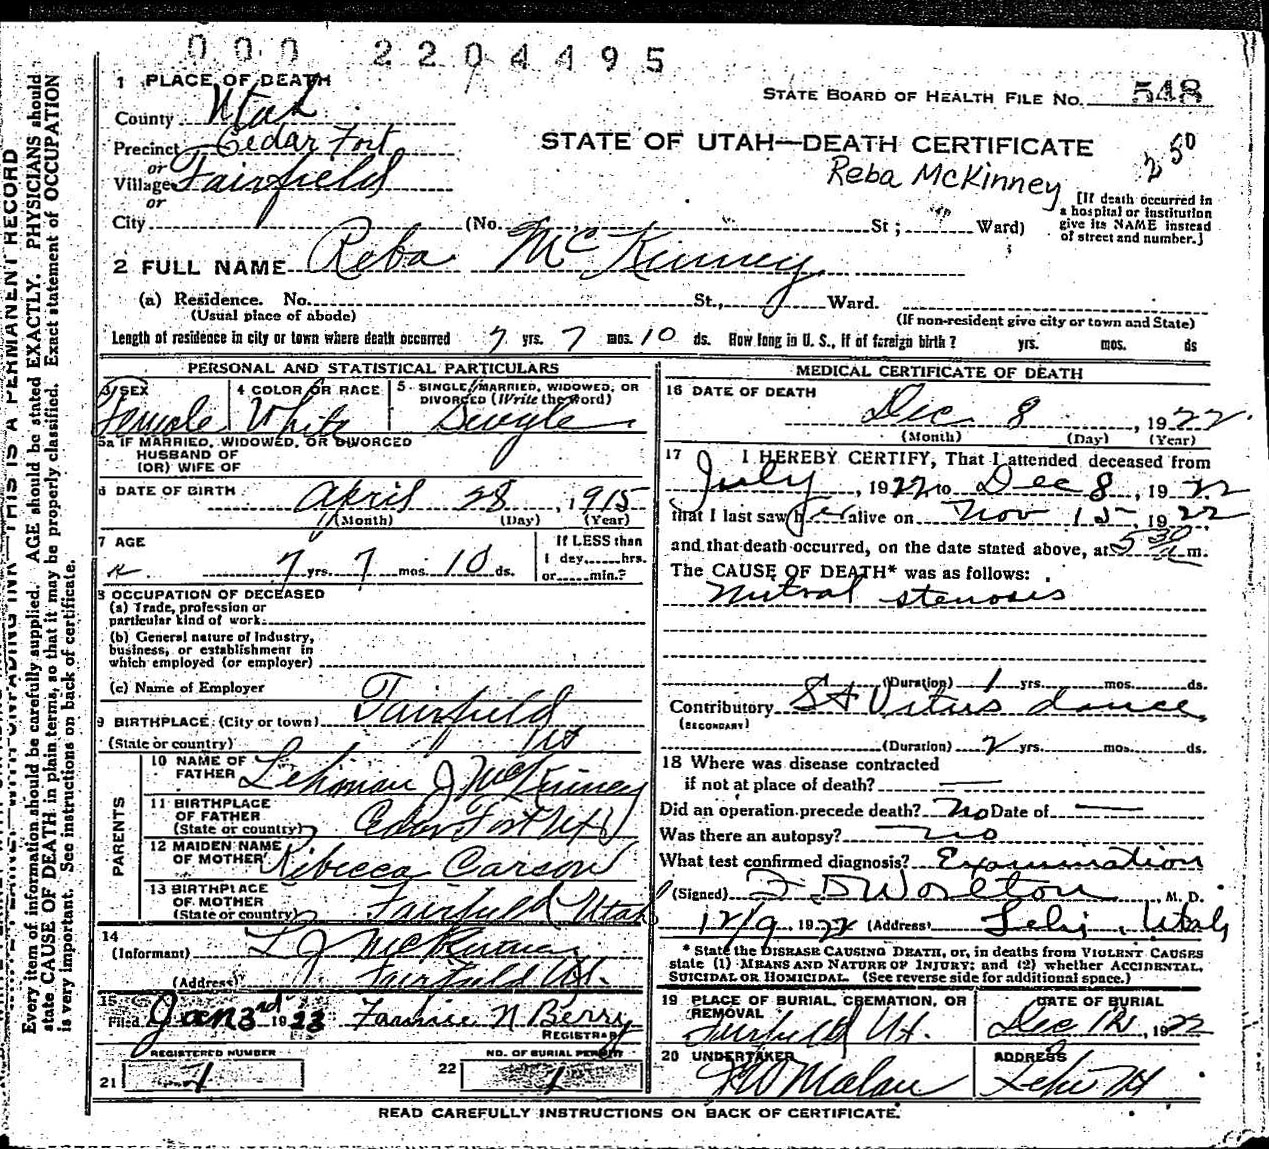 000 2204495
1 PLACE OF DEATH
STATE BOARD OF HEALTH FILE NO. 548
County Utah
Precinct Cedar Fort
STATE OF UTAH—DEATH CERTIFICATE
or
Village Fairfield
Reba McKinney
2 50
or
[If death occurred in a hospital or institution give its NAME instead of street and number.]
City (No. St; Ward)
2 FULL NAME Reba McKinney
(a) Residence. No. St., Ward.
(Usual place of abode) (If non-resident give city or town and State)
Length of residence in city or town where death occurred 7 yrs. 7 mos. 10 ds. How long in U. S., if of foreign birth? yrs. mos. ds
PERSONAL AND STATISTICAL PARTICULARS
3 SEX Female
4 COLOR OR RACE White
5 SINGLE, MARRIED, WIDOWED, OR DIVORCED (Write the word) Single
5a IF MARRIED, WIDOWED, OR DIVORCED
HUSBAND OF
(OR) WIFE OF
6 DATE OF BIRTH April 28, 1915
(Month) (Day) (Year)
7 AGE
7 yrs. 7 mos. 10 ds.
If LESS than
1 day hrs.
or min.?
8 OCCUPATION OF DECEASED
(a) Trade, profession or
particular kind of work
(b) General nature of Industry,
business, or establishment in
which employed (or employer)
(c) Name of Employer
9 BIRTHPLACE (City or town) Fairfield
(State or country) Ut
PARENTS
10 NAME OF FATHER Lehman J McKinney
11 BIRTHPLACE OF FATHER (State or country) Cedar Fort Ut
12 MAIDEN NAME OF MOTHER Ribecca Carson
13 BIRTHPLACE OF MOTHER (State or country) Fairfield Utah
14
(Informant) L J McKinney
(Address) Fairfield Ut.
15
Filed Jan 3rd 1923 Fannie N Berry
REGISTRAR
REGISTERED NUMBER
21 1
NO. OF BURIAL PERMIT
22 1
MEDICAL CERTIFICATE OF DEATH
16 DATE OF DEATH
Dec 8, 1922
(Month) (Day) (Year)
17 I HEREBY CERTIFY, That I attended deceased from
July, 1922 to Dec 8, 1922
that I last saw her alive on Nov 15, 1922
and that death occurred, on the date stated above, at 5 30 a m.
The CAUSE OF DEATH* was as follows:
Mitral stenosis
(Duration) 1 yrs. mos. ds.
Contributory St Vitus dance
(SECONDARY)
(Duration) 2 yrs. mos. ds.
18 Where was disease contracted
if not at place of death? —
Did an operation precede death? No Date of —
Was there an autopsy? no
What test confirmed diagnosis? Examination
(Signed) F D Worlton, M. D.
12/9 1922 (Address) Lehi, Utah
* State the DISEASE CAUSING DEATH, or, in deaths from VIOLENT CAUSES
state (1) MEANS AND NATURE OF INJURY; and (2) whether ACCIDENTAL,
SUICIDAL OR HOMICIDAL. (See reverse side for additional space.)
19 PLACE OF BURIAL, CREMATION, OR REMOVAL Fairfield Ut.
DATE OF BURIAL Dec 12, 1922
20 UNDERTAKER Malan
ADDRESS Lehi Ut
READ CAREFULLY INSTRUCTIONS ON BACK OF CERTIFICATE.
THIS IS A PERMANENT RECORD
Every item of information should be carefully supplied. AGE should be stated EXACTLY. PHYSICIANS should
state CAUSE OF DEATH in plain terms, so that it may be properly classified. Exact statement of OCCUPATION
is very important. See instructions on back of certificate.